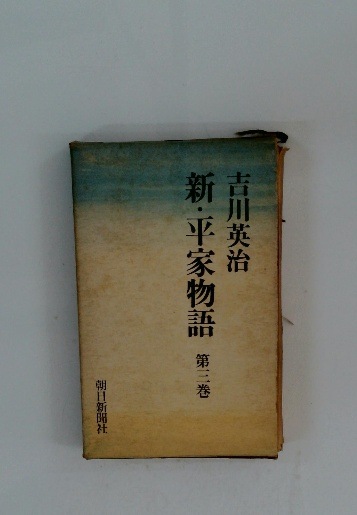 吉川英治
新・平家物語 第三巻
朝日新聞社